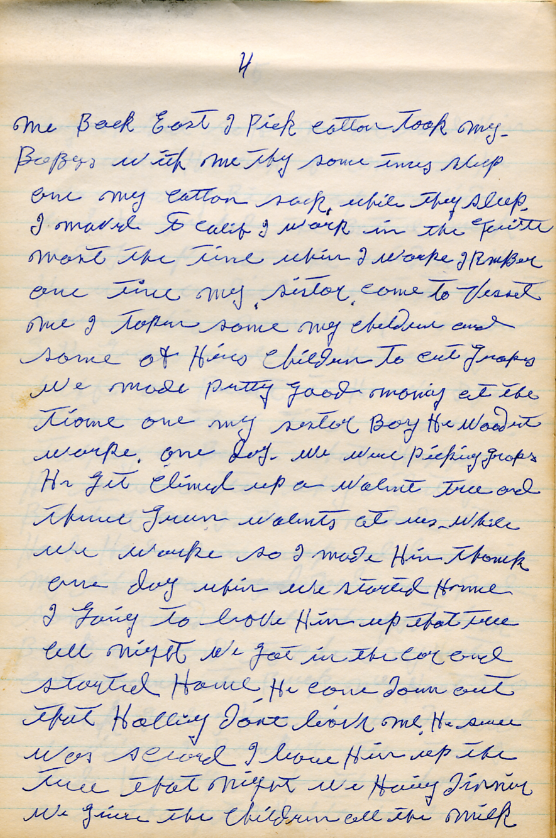 4
me Back East I Pick cotton took my
Babys with me thy some times sleep
one my cotton sack, while they sleep
I moved to Calif I work in the Fruite
most the time when I worke I Rember
one time my sistor, come to Vesset
me I taken some my children and
some of Hirs children to cut graps
we made putty good moniy at the
time one my sistor Boy He Woodnt
worke. one day. we were picking graps
He get climed up a walnut tree and
throw green walnuts at us while
we worke so I made Him thank
one day when we started Home
I going to leave Him up that tree
all night we got in the car and
started Home He come down out
that Holling dont leave me, He suer
was scared I leave Him up the
tree that night we Having Dinner
we give the children all the milk